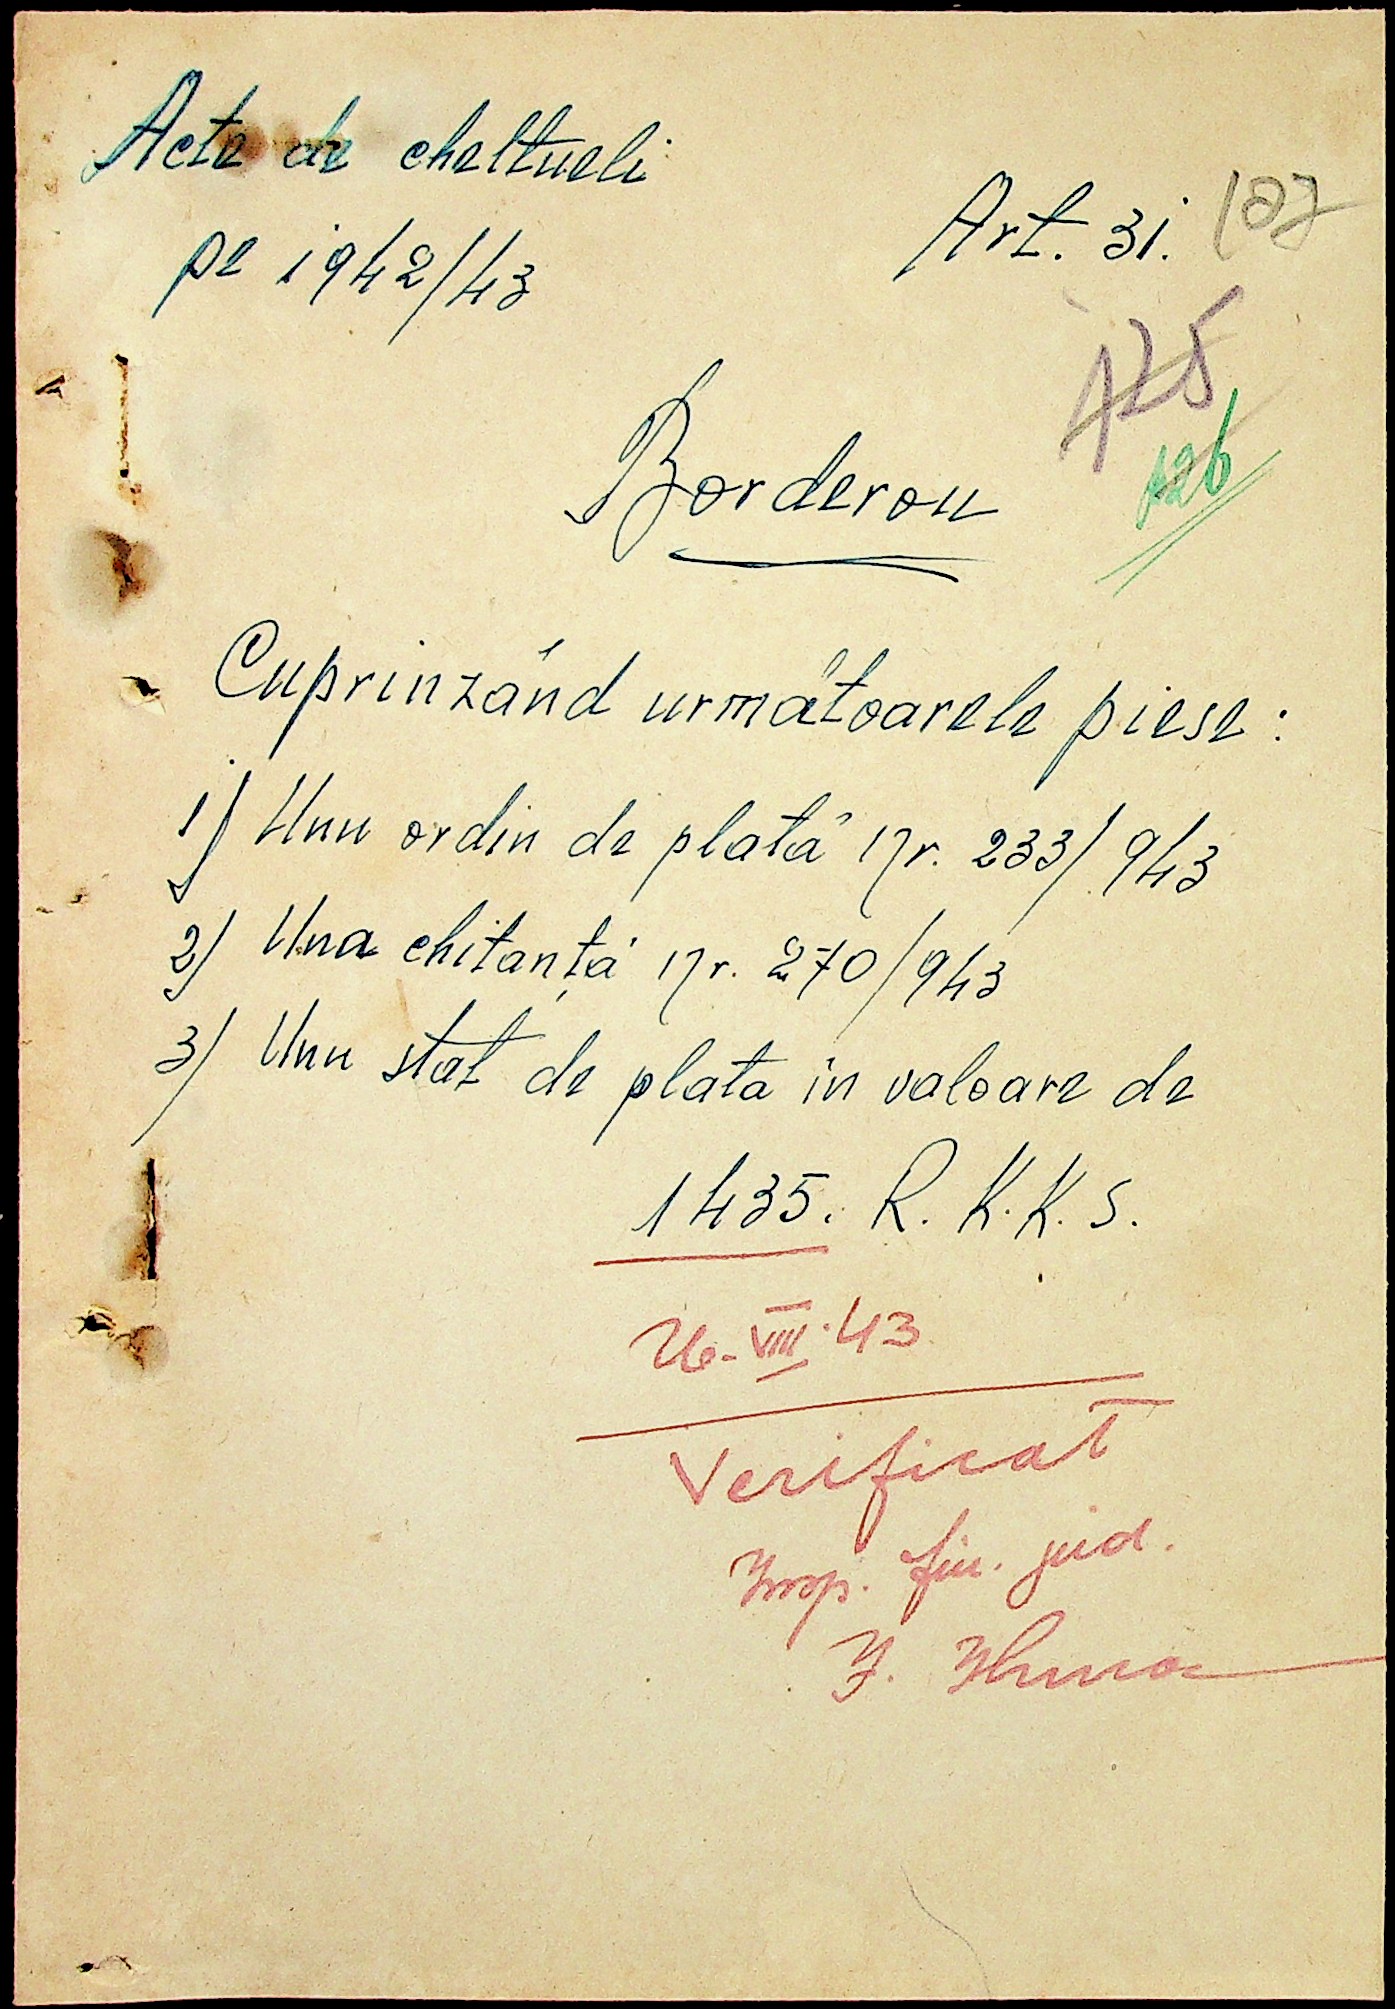 Acte de cheltueli
pe 1942/43
Art. 31.
107
125
126
Borderou
Cuprinzând următoarele piese:
1) Unu ordin de plată Nr. 233/943
2) Una chitanță Nr. 270/943
3) Unu stat de plata în valoare de
1435. R.K.K.S.
26-VIII.43
Verificat
Insp. fin. jud.